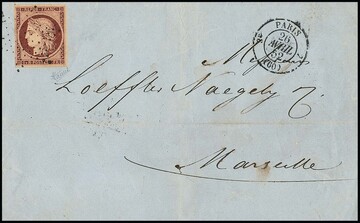 REPUB. FRANC.
PARIS
26
AVRIL
52
(60)
Loeffler Naegely
Marseille